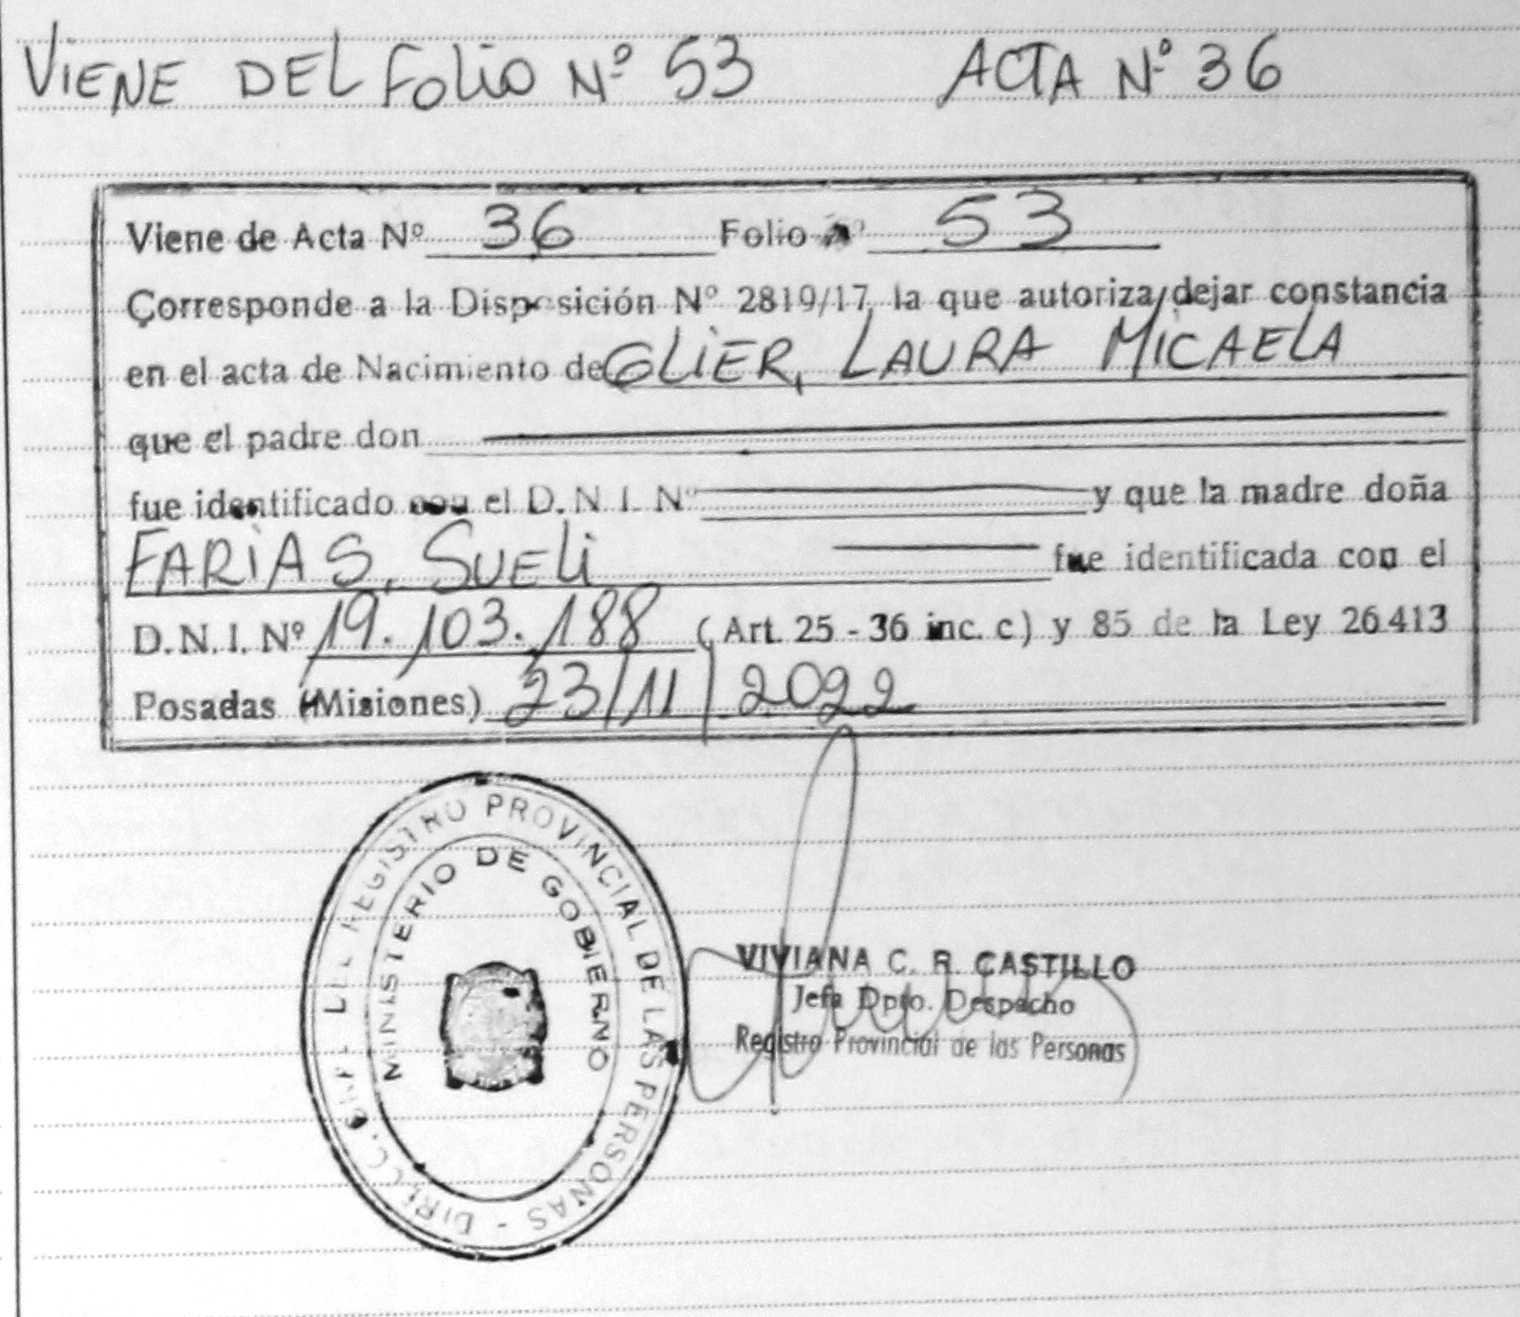 VIENE DEL FOLIO Nº 53 ACTA Nº 36
Viene de Acta Nº 36 Folio Nº 53
Corresponde a la Disposición Nº 2819/17, la que autoriza dejar constancia
en el acta de Nacimiento de GLIER, LAURA MICAELA
que el padre don
fue identificado con el D.N.I. Nº y que la madre doña
FARIAS, SUELI fue identificada con el
D.N.I. Nº 19.103.188 (Art. 25 - 36 inc. c) y 85 de la Ley 26413
Posadas (Misiones) 23/11/2022
REGISTRO PROVINCIAL DE LAS PERSONAS - DIRECC.
MINISTERIO DE GOBIERNO
VIVIANA C. R. CASTILLO
Jefa Dpto. Despacho
Registro Provincial de las Personas